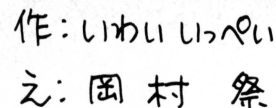 作：いわい いっぺい
え：岡村 祭